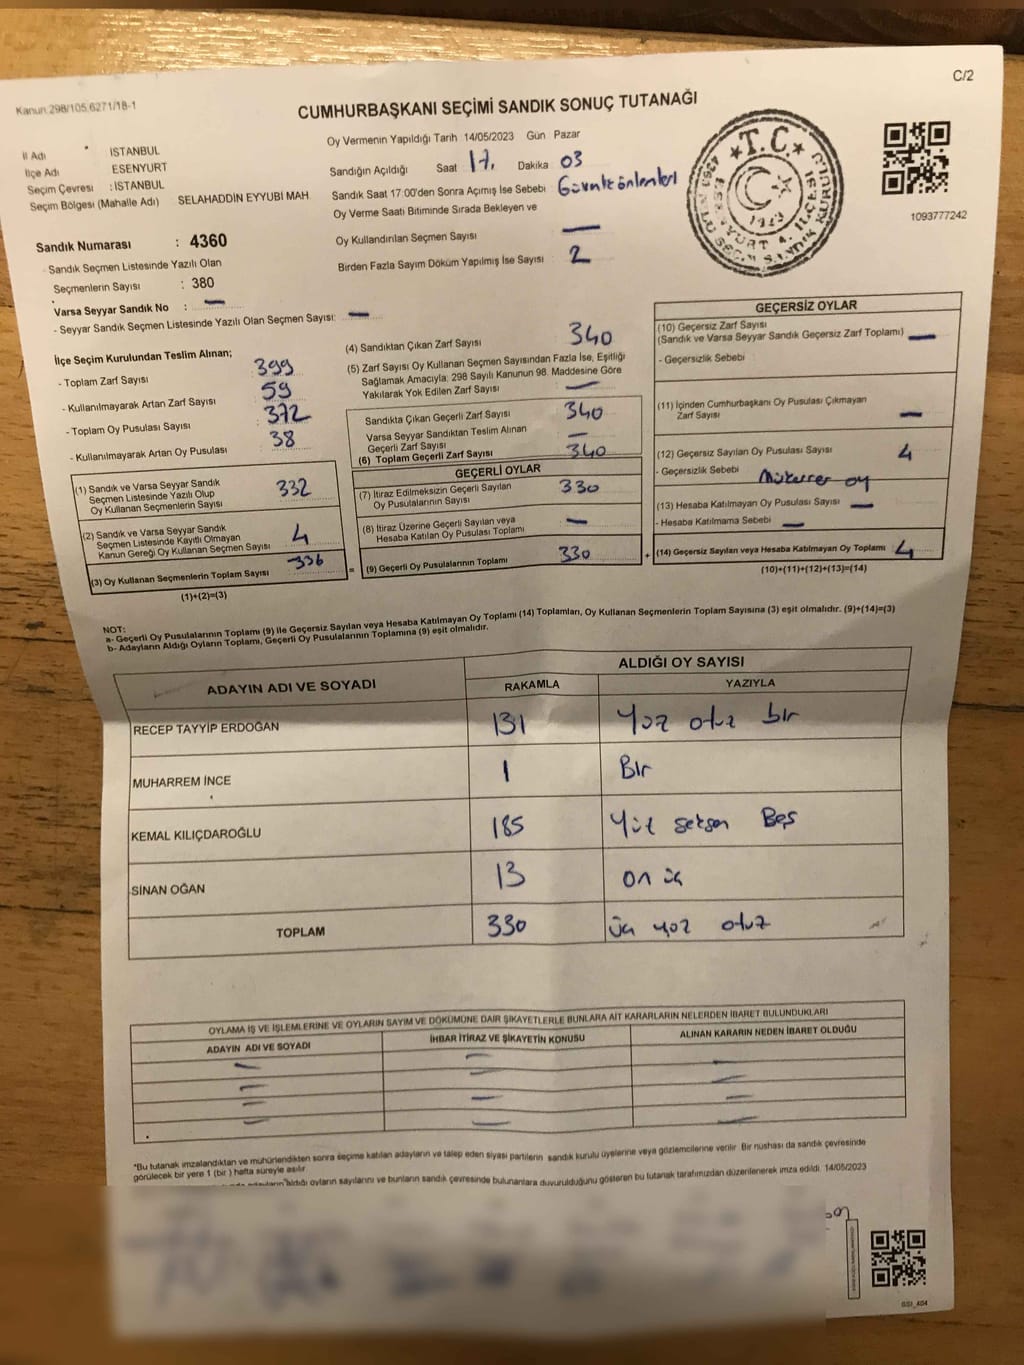 C/2
Kanun:298/105,6271/18-1
CUMHURBAŞKANI SEÇİMİ SANDIK SONUÇ TUTANAĞI
İl Adı : İSTANBUL
İlçe Adı ESENYURT
Seçim Çevresi : İSTANBUL
Seçim Bölgesi (Mahalle Adı) SELAHADDİN EYYUBİ MAH.
Sandık Numarası : 4360
- Sandık Seçmen Listesinde Yazılı Olan
Seçmenlerin Sayısı : 380
Varsa Seyyar Sandık No : —
- Seyyar Sandık Seçmen Listesinde Yazılı Olan Seçmen Sayısı: —
Oy Vermenin Yapıldığı Tarih 14/05/2023 Gün Pazar
Sandığın Açıldığı Saat 17. Dakika 03
Sandık Saat 17:00'den Sonra Açılmış İse Sebebi
Oy Verme Saati Bitiminde Sırada Bekleyen ve
Oy Kullandırılan Seçmen Sayısı —
Birden Fazla Sayım Döküm Yapılmış İse Sayısı 2
★ T.C. ★
1923
1093777242
İlçe Seçim Kurulundan Teslim Alınan;
- Toplam Zarf Sayısı 399
- Kullanılmayarak Artan Zarf Sayısı 59
- Toplam Oy Pusulası Sayısı 372
- Kullanılmayarak Artan Oy Pusulası 38
(1) Sandık ve Varsa Seyyar Sandık
Seçmen Listesinde Yazılı Olup
Oy Kullanan Seçmenlerin Sayısı 332
(2) Sandık ve Varsa Seyyar Sandık
Seçmen Listesinde Kayıtlı Olmayan
Kanun Gereği Oy Kullanan Seçmen Sayısı 4
(3) Oy Kullanan Seçmenlerin Toplam Sayısı 336
(1)+(2)=(3)
(4) Sandıktan Çıkan Zarf Sayısı 340
(5) Zarf Sayısı Oy Kullanan Seçmen Sayısından Fazla İse, Eşitliği
Sağlamak Amacıyla; 298 Sayılı Kanunun 98. Maddesine Göre
Yakılarak Yok Edilen Zarf Sayısı —
Sandıkta Çıkan Geçerli Zarf Sayısı 340
Varsa Seyyar Sandıktan Teslim Alınan
Geçerli Zarf Sayısı —
(6) Toplam Geçerli Zarf Sayısı 340
GEÇERLİ OYLAR
(7) İtiraz Edilmeksizin Geçerli Sayılan
Oy Pusulalarının Sayısı 330
(8) İtiraz Üzerine Geçerli Sayılan veya
Hesaba Katılan Oy Pusulası Toplamı —
= (9) Geçerli Oy Pusulalarının Toplamı 330
GEÇERSİZ OYLAR
(10) Geçersiz Zarf Sayısı
(Sandık ve Varsa Seyyar Sandık Geçersiz Zarf Toplamı) —
- Geçersizlik Sebebi
(11) İçinden Cumhurbaşkanı Oy Pusulası Çıkmayan
Zarf Sayısı —
(12) Geçersiz Sayılan Oy Pusulası Sayısı 4
- Geçersizlik Sebebi Mükerrer oy
(13) Hesaba Katılmayan Oy Pusulası Sayısı —
- Hesaba Katılmama Sebebi —
+ (14) Geçersiz Sayılan veya Hesaba Katılmayan Oy Toplamı 4
(10)+(11)+(12)+(13)=(14)
NOT:
a- Geçerli Oy Pusulalarının Toplamı (9) ile Geçersiz Sayılan veya Hesaba Katılmayan Oy Toplamı (14) Toplamları, Oy Kullanan Seçmenlerin Toplam Sayısına (3) eşit olmalıdır. (9)+(14)=(3)
b- Adayların Aldığı Oyların Toplamı, Geçerli Oy Pusulalarının Toplamına (9) eşit olmalıdır.
ADAYIN ADI VE SOYADI ALDIĞI OY SAYISI
RAKAMLA YAZIYLA
RECEP TAYYİP ERDOĞAN 131 Yüz otuz bir
MUHARREM İNCE 1 Bir
KEMAL KILIÇDAROĞLU 185 Yüz seksen Beş
SİNAN OĞAN 13 on üç
TOPLAM 330 üç yüz otuz
OYLAMA İŞ VE İŞLEMLERİNE VE OYLARIN SAYIM VE DÖKÜMÜNE DAİR ŞİKAYETLERLE BUNLARA AİT KARARLARIN NELERDEN İBARET BULUNDUKLARI
ADAYIN ADI VE SOYADI İHBAR İTİRAZ VE ŞİKAYETİN KONUSU ALINAN KARARIN NEDEN İBARET OLDUĞU
*Bu tutanak imzalandıktan ve mühürlendikten sonra seçime katılan adayların ve talep eden siyasi partilerin sandık kurulu üyelerine veya gözlemcilerine verilir. Bir nüshası da sandık çevresinde
görülecek bir yere 1 (bir) hafta süreyle asılır.
aldığı oyların sayılarını ve bunların sandık çevresinde bulunanlara duyurulduğunu gösteren bu tutanak tarafımızdan düzenlenerek imza edildi. 14/05/2023